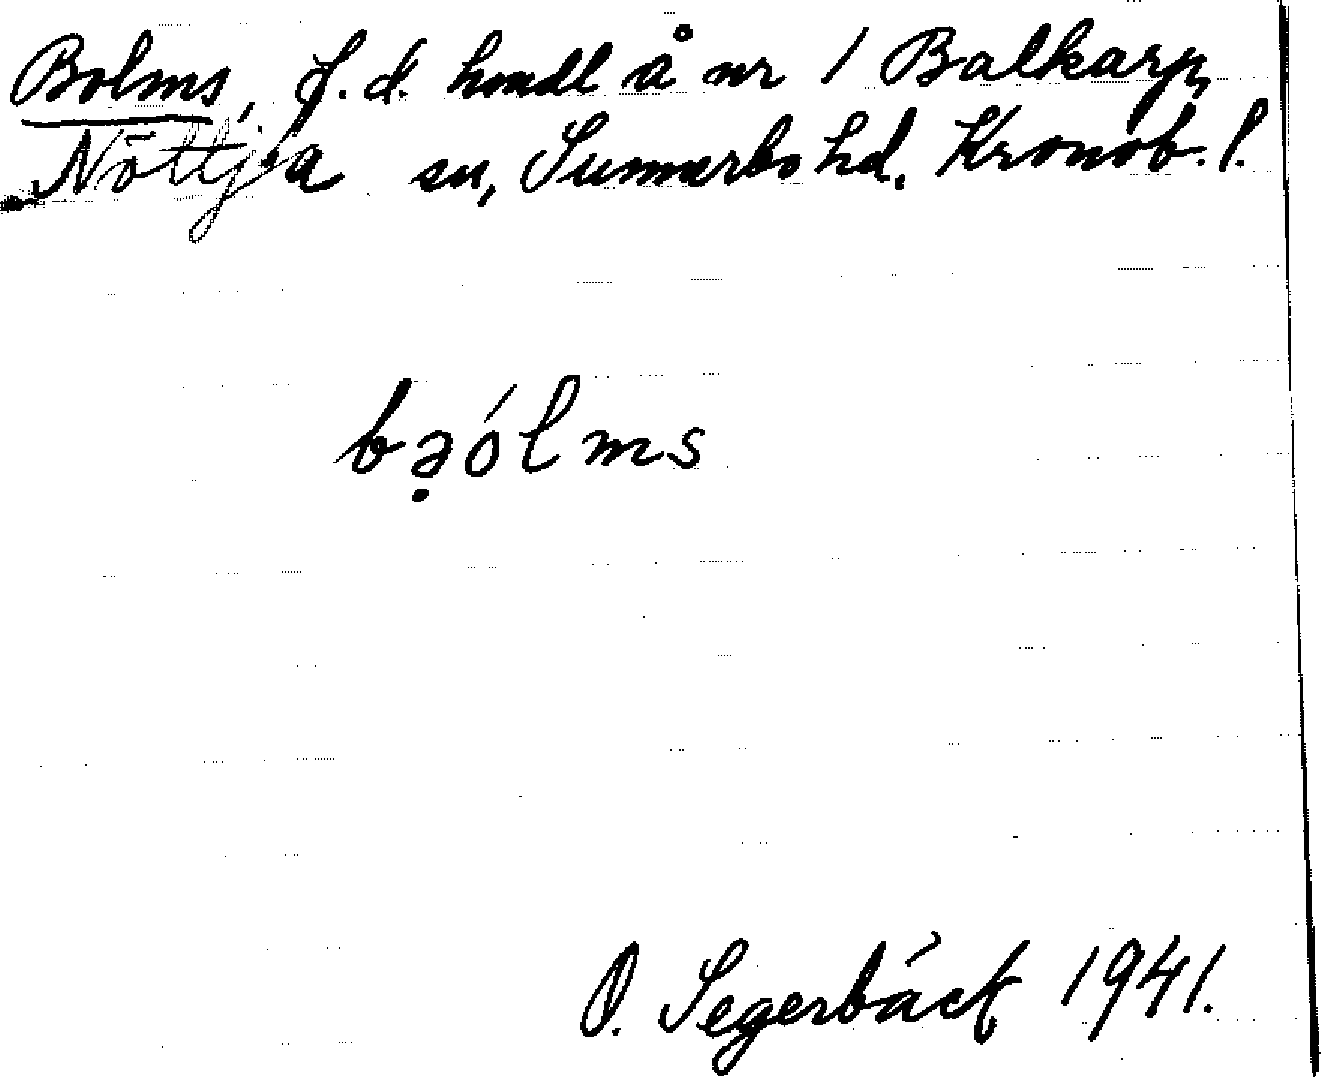 Bolms, f.d. hmdl å nr 1 Balkarp,
Nöttja sn, Sunnerbo hd. Kronob. l.
bə̣ólms
O. Segerbäck 1941.